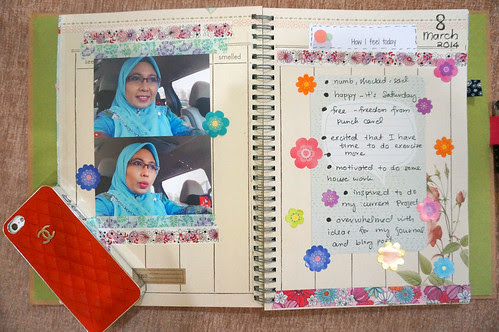 smelled
How I feel today
8
March
2014
numb, shocked, sad
happy - it's Saturday
free - freedom from
punch card
excited that I have
time to do exercise
more
motivated to do some
house work
inspired to do
my current project
overwhelmed with
ideas for my journal
and blog